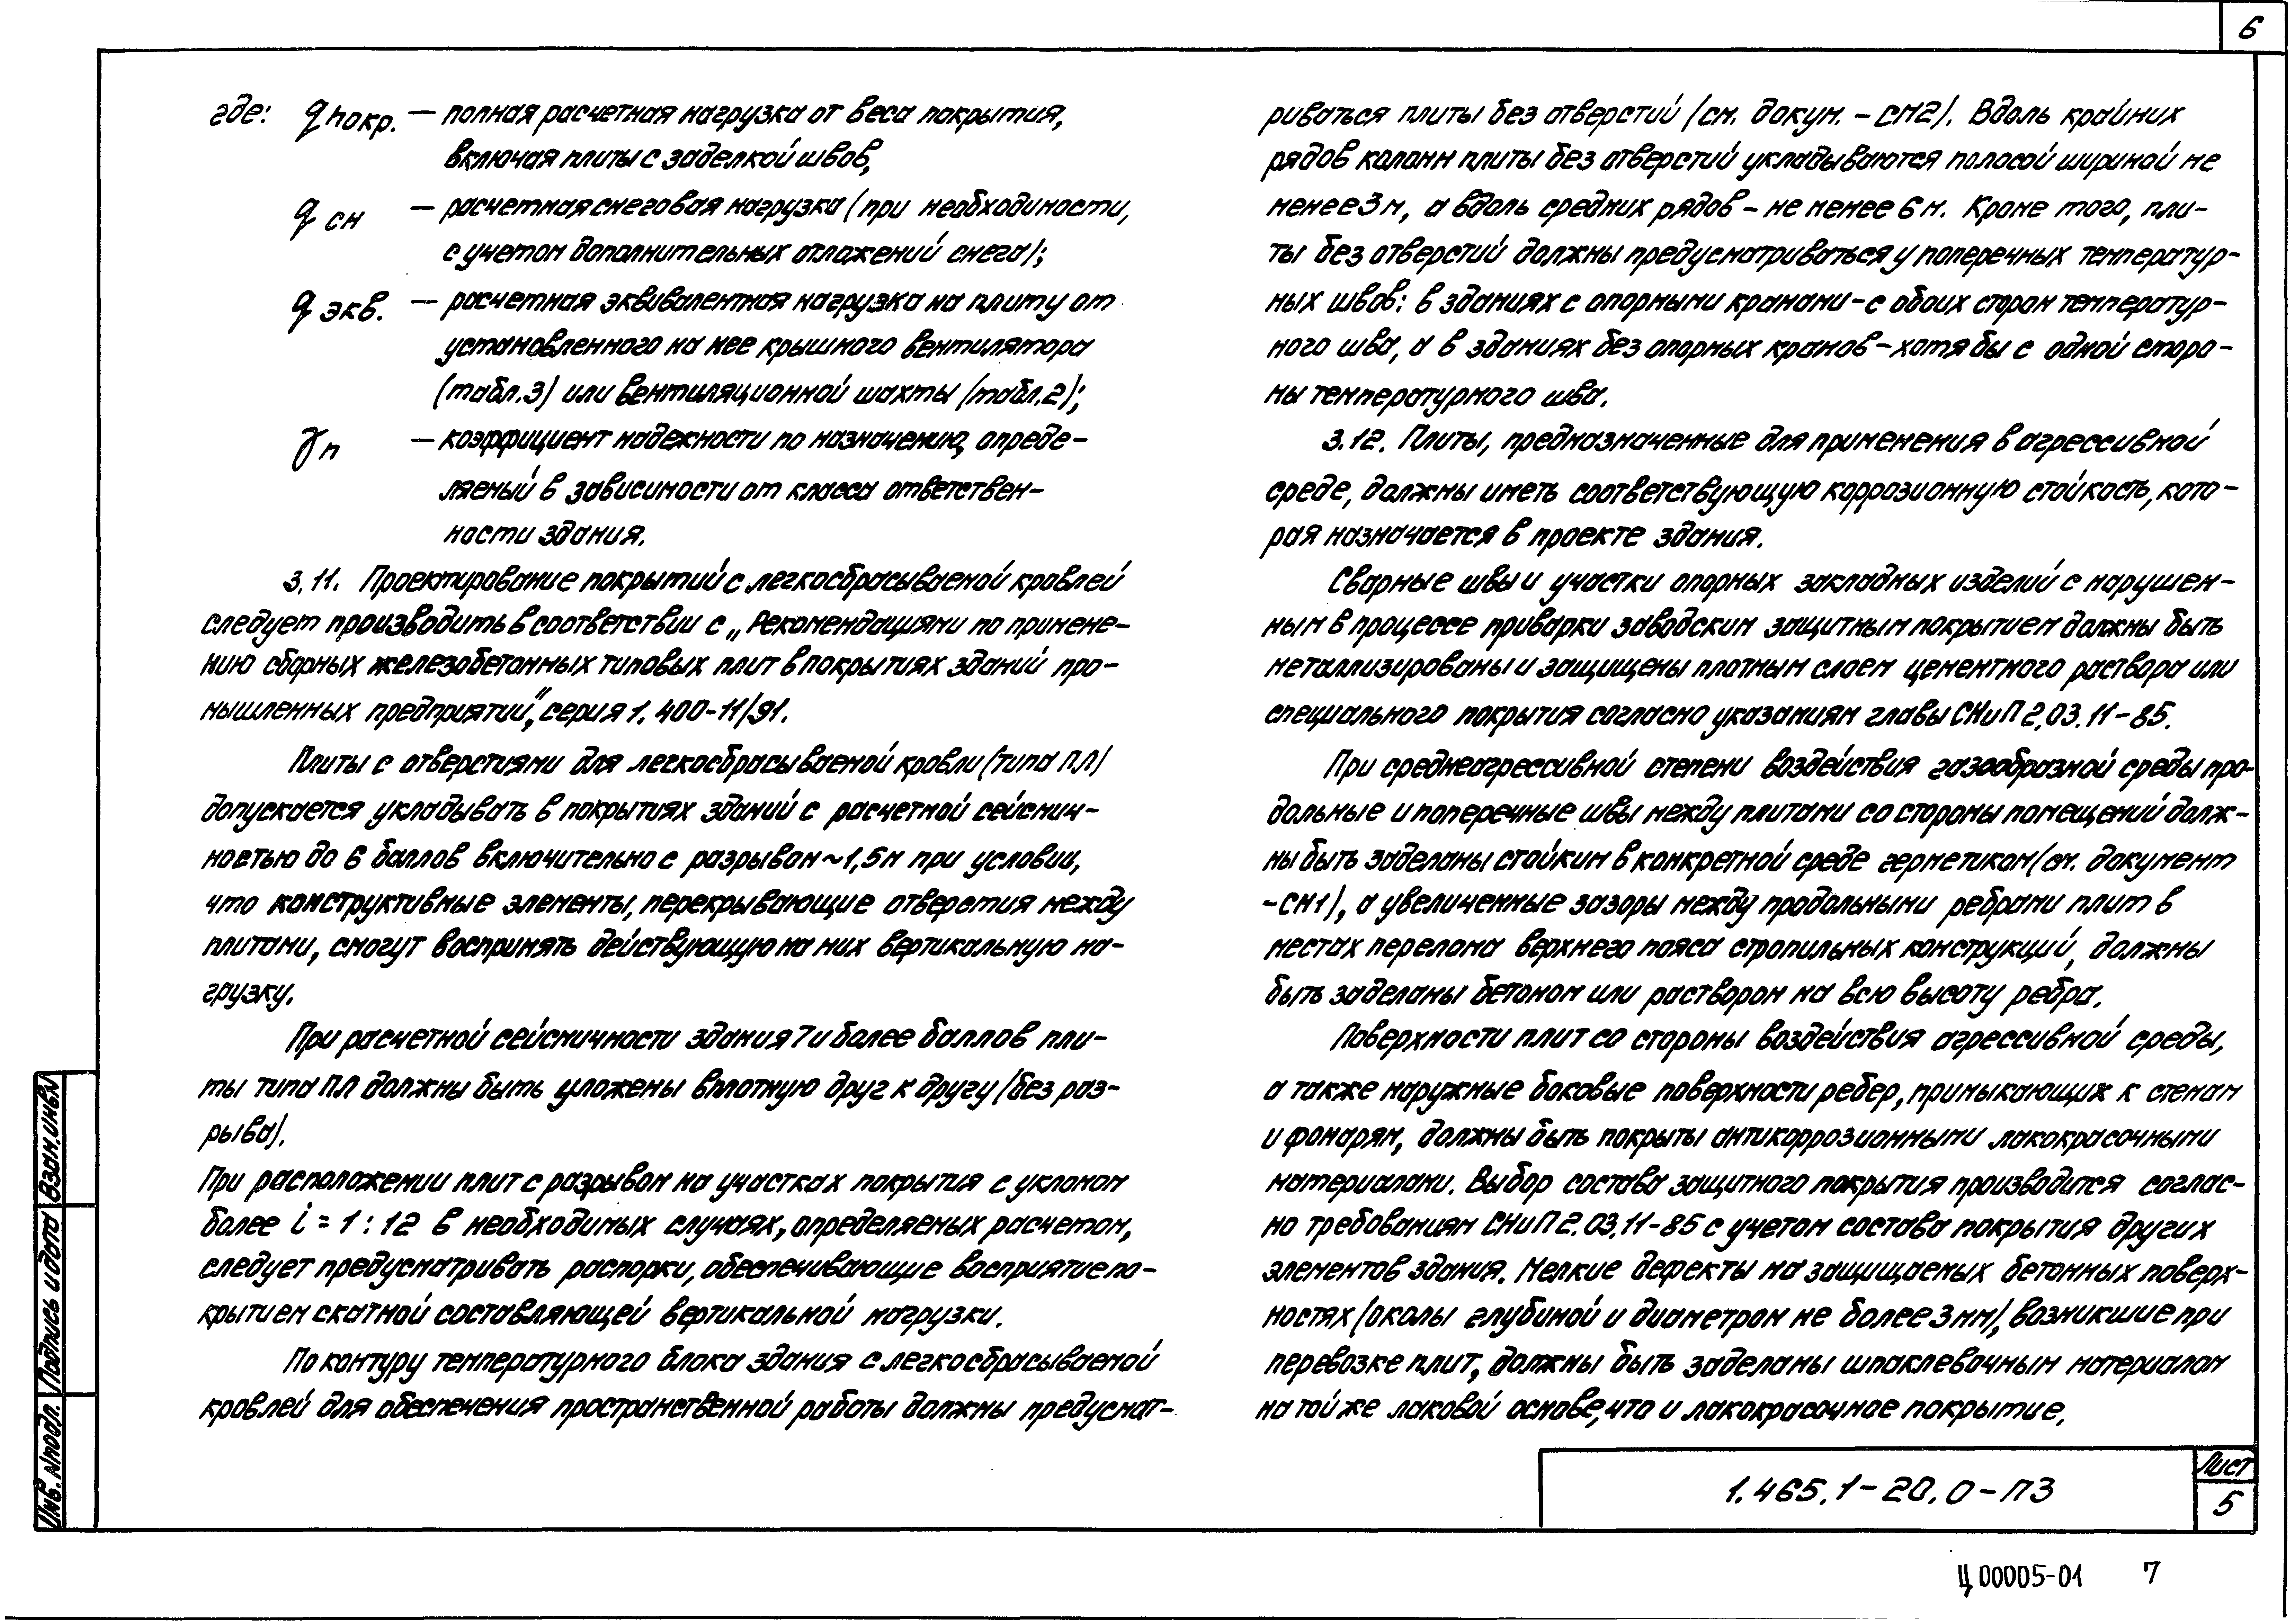 6
где: qпокр. — полная расчетная нагрузка от веса покрытия,
включая плиты с заделкой швов,
qсн — расчетная снеговая нагрузка (при необходимости,
с учетом дополнительных отложений снега);
qэкв. — расчетная эквивалентная нагрузка на плиту от
установленного на нее крышного вентилятора
(табл.3) или вентиляционной шахты (табл.2);
γп — коэффициент надежности по назначению, опреде-
ляемый в зависимости от класса ответствен-
ности здания.
3.11. Проектирование покрытий с легкосбрасываемой кровлей
следует производить в соответствии с „Рекомендациями по примене-
нию сборных железобетонных типовых плит в покрытиях зданий про-
мышленных предприятий", серия 1.400-11/91.
Плиты с отверстиями для легкосбрасываемой кровли (типа ПЛ)
допускается укладывать в покрытиях зданий с расчетной сейсмич-
ностью до 6 баллов включительно с разрывом ~1,5м при условии,
что конструктивные элементы, перекрывающие отверстия между
плитами, смогут воспринять действующую на них вертикальную на-
грузку.
При расчетной сейсмичности здания 7 и более баллов пли-
ты типа ПЛ должны быть уложены вплотную друг к другу (без раз-
рыва).
При расположении плит с разрывом на участках покрытия с уклоном
более i = 1 : 12 в необходимых случаях, определяемых расчетом,
следует предусматривать распорки, обеспечивающие восприятие по-
крытием скатной составляющей вертикальной нагрузки.
По контуру температурного блока здания с легкосбрасываемой
кровлей для обеспечения пространственной работы должны предусмат-
риваться плиты без отверстий (см. докум. - СМ2). Вдоль крайних
рядов колонн плиты без отверстий укладываются полосой шириной не
менее 3 м, а вдоль средних рядов - не менее 6 м. Кроме того, пли-
ты без отверстий должны предусматриваться у поперечных температур-
ных швов: в зданиях с опорными кранами - с обоих сторон температур-
ного шва, а в зданиях без опорных кранов - хотя бы с одной сторо-
ны температурного шва.
3.12. Плиты, предназначенные для применения в агрессивной
среде, должны иметь соответствующую коррозионную стойкость, кото-
рая назначается в проекте здания.
Сварные швы и участки опорных закладных изделий с нарушен-
ным в процессе приварки заводским защитным покрытием должны быть
металлизированы и защищены плотным слоем цементного раствора или
специального покрытия согласно указаниям главы СНиП 2.03.11-85.
При среднеагрессивной степени воздействия газообразной среды про-
дольные и поперечные швы между плитами со стороны помещений долж-
ны быть заделаны стойким в конкретной среде герметиком (см. документ
-СМ1), а увеличенные зазоры между продольными ребрами плит в
местах перелома верхнего пояса стропильных конструкций, должны
быть заделаны бетоном или раствором на всю высоту ребра.
Поверхности плит со стороны воздействия агрессивной среды,
а также наружные боковые поверхности ребер, примыкающих к стенам
и фонарям, должны быть покрыты антикоррозионными лакокрасочными
материалами. Выбор состава защитного покрытия производится соглас-
но требованиям СНиП 2.03.11-85 с учетом состава покрытия других
элементов здания. Мелкие дефекты на защищаемых бетонных поверх-
ностях (околы глубиной и диаметром не более 3 мм), возникшие при
перевозке плит, должны быть заделаны шпаклевочным материалом
на той же лаковой основе, что и лакокрасочное покрытие.
Инв. № подл. Подпись и дата Взам. инв. №
1.465.1-20.0-ПЗ
Лист
5
Ц00005-01 7